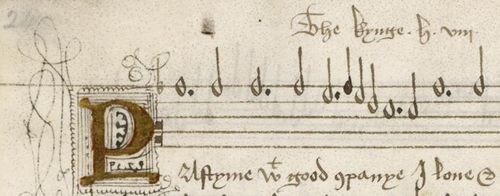 The kynge . h . viii
PAstyme wͭ good ꝯpanye I loue &